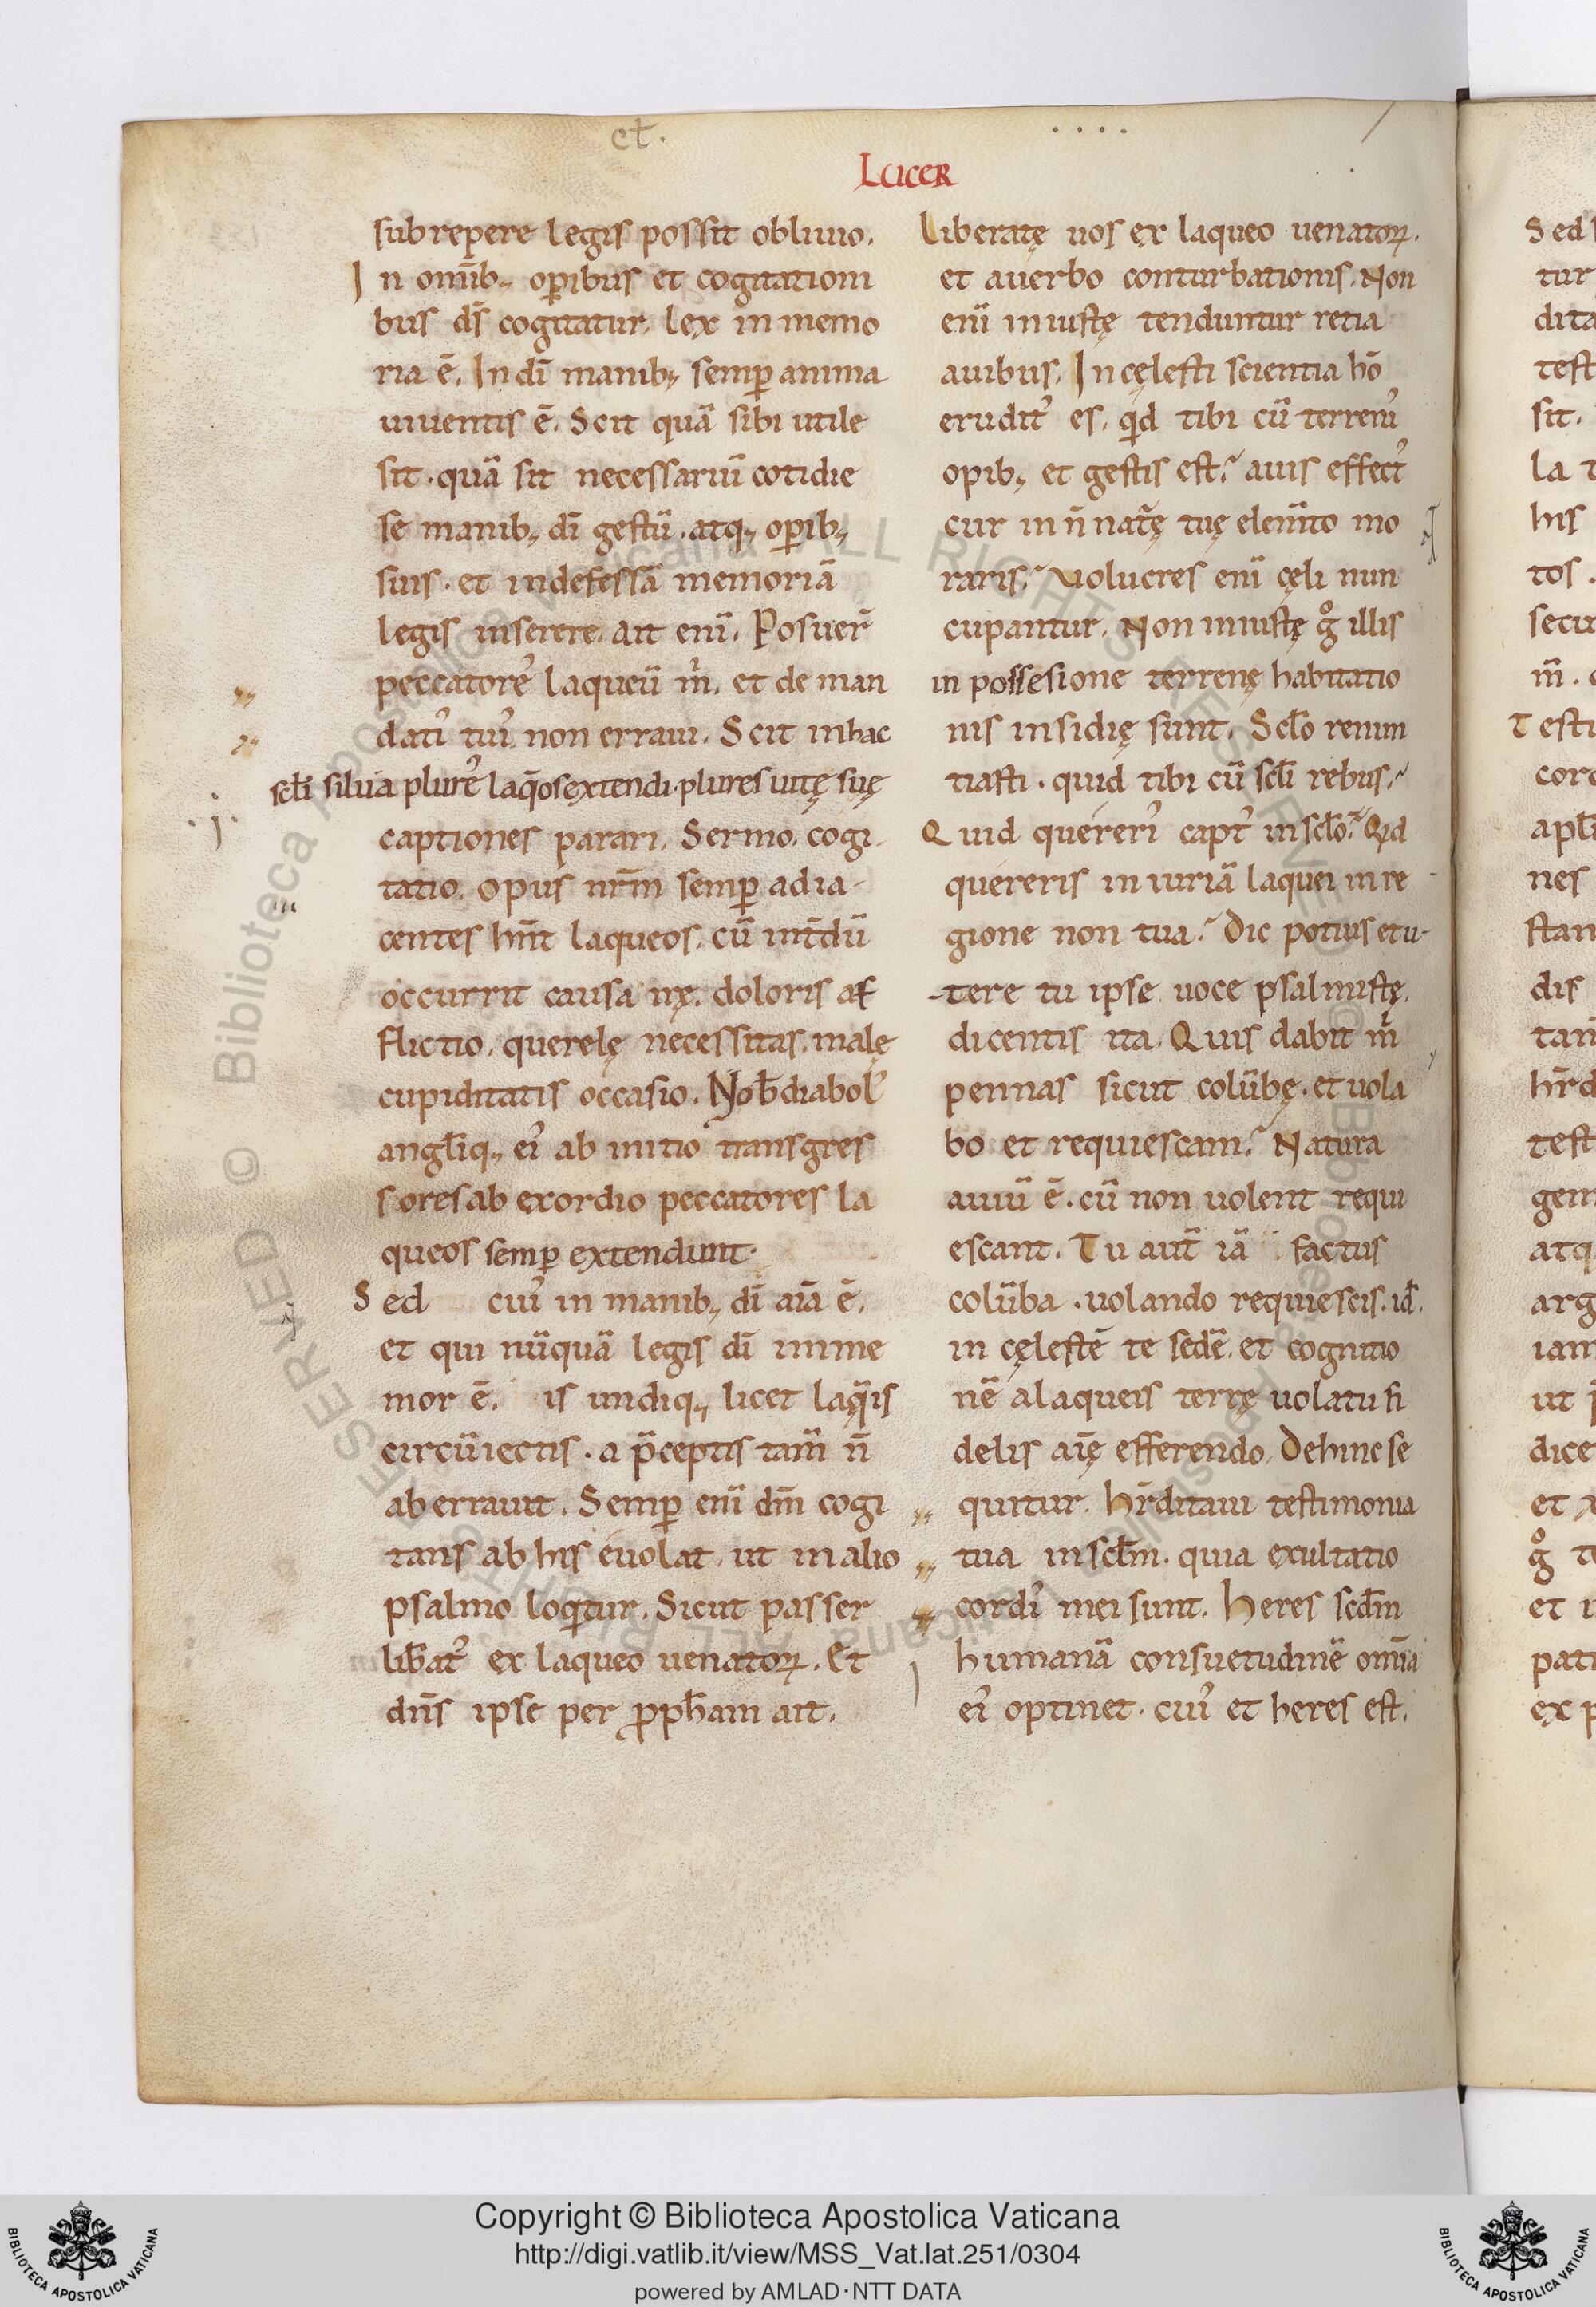 et.
Lucer
subrepere legis possit obliuio.
In omīb; opibus et cogitationi
bus dš cogitatur. lex in memo
ria ē. In dī manib; semp anima
uiuentis ē. Scit quā sibi utile
sit. quā sit necessariū cotidie
se manib; dī gestū. atq; opib;
suis. et indefessā memoriā
legis inserere. ait enī. Posuer̄
peccatore᾽ laqueū m̊. et de man
dati᾽ tui᾽ non erraui. Scit in hac
sclī silua plure᾽ laq̄os extendi. plures uitę suę
captiones parari. Sermo. cogi
tatio. opus nr̄m semp adia-
centes hn̄t laqueos. cū int̄dū
occurrit causa irę. doloris af
flictio. querelę necessitas. malę
cupiditatis occasio. Nob̄ diabol᾽
anglīq; ei᾽ ab initio transgres
sores ab exordio peccatores la
queos semp extendunt.
Sed cui᾽ in manib; dī aīa ē.
et qui nūquā legis dī imme
mor ē. is undiq; licet laq̄is
circūiectis. a p̄ceptis tam̄ n̄
aberrauit. Semp enī dm̄ cogi
tans ab his euolat. ut in alio
psalmo loqtur. Sicut passer
lib̄at᾽ ex laqueo uenatoꝝ. Et
dn̄s ipse per pph̄am ait.
Liberatę uos ex laqueo uenatoꝝ.
et a uerbo conturbationis. Non
enī iniustę tenduntur retia
auibus. In cęlesti scientia hō
erudit᾽ es. qd tibi cū terreni᾽
opib; et gestis est? auis effect᾽
cur in n̄ nat̄ę tuę elem̄to mo
raris? Uolucres enī cęli nun
cupantur. Non iniustę g̊ illis
in possesione terrenę habitatio
nis insidię sunt. Sclo renun
tiasti. quid tibi cū sclī rebus?
Quid quereri᾽ capt᾽ in sclo? Qd
quereris iniuriā laquei in re
gione non tua? Dic potius et u-
-tere tu ipse uoce psalmistę.
dicentis ita. Quis dabit m̊
pennas sicut colūbę. et uola
bo et requiescam? Natura
auiū ē. cū non uolent requi
escant. Tu aut̄ iā factus
colūba. uolando requiescis. id̄.
in cęlestē te sedē. et cognitio
nē a laqueis terrę uolatu fi
delis aīę efferendo. Dehinc se
quitur. Hr̄ditaui testimonia
tua in sclm. quia exultatio
cordi᾽ mei sunt. Heres scd̄m
humanā consuetudinē omīa
ei᾽ optinet. cui᾽ et heres est.
Copyright © Biblioteca Apostolica Vaticana
http://digi.vatlib.it/view/MSS_Vat.lat.251/0304
powered by AMLAD·NTT DATA